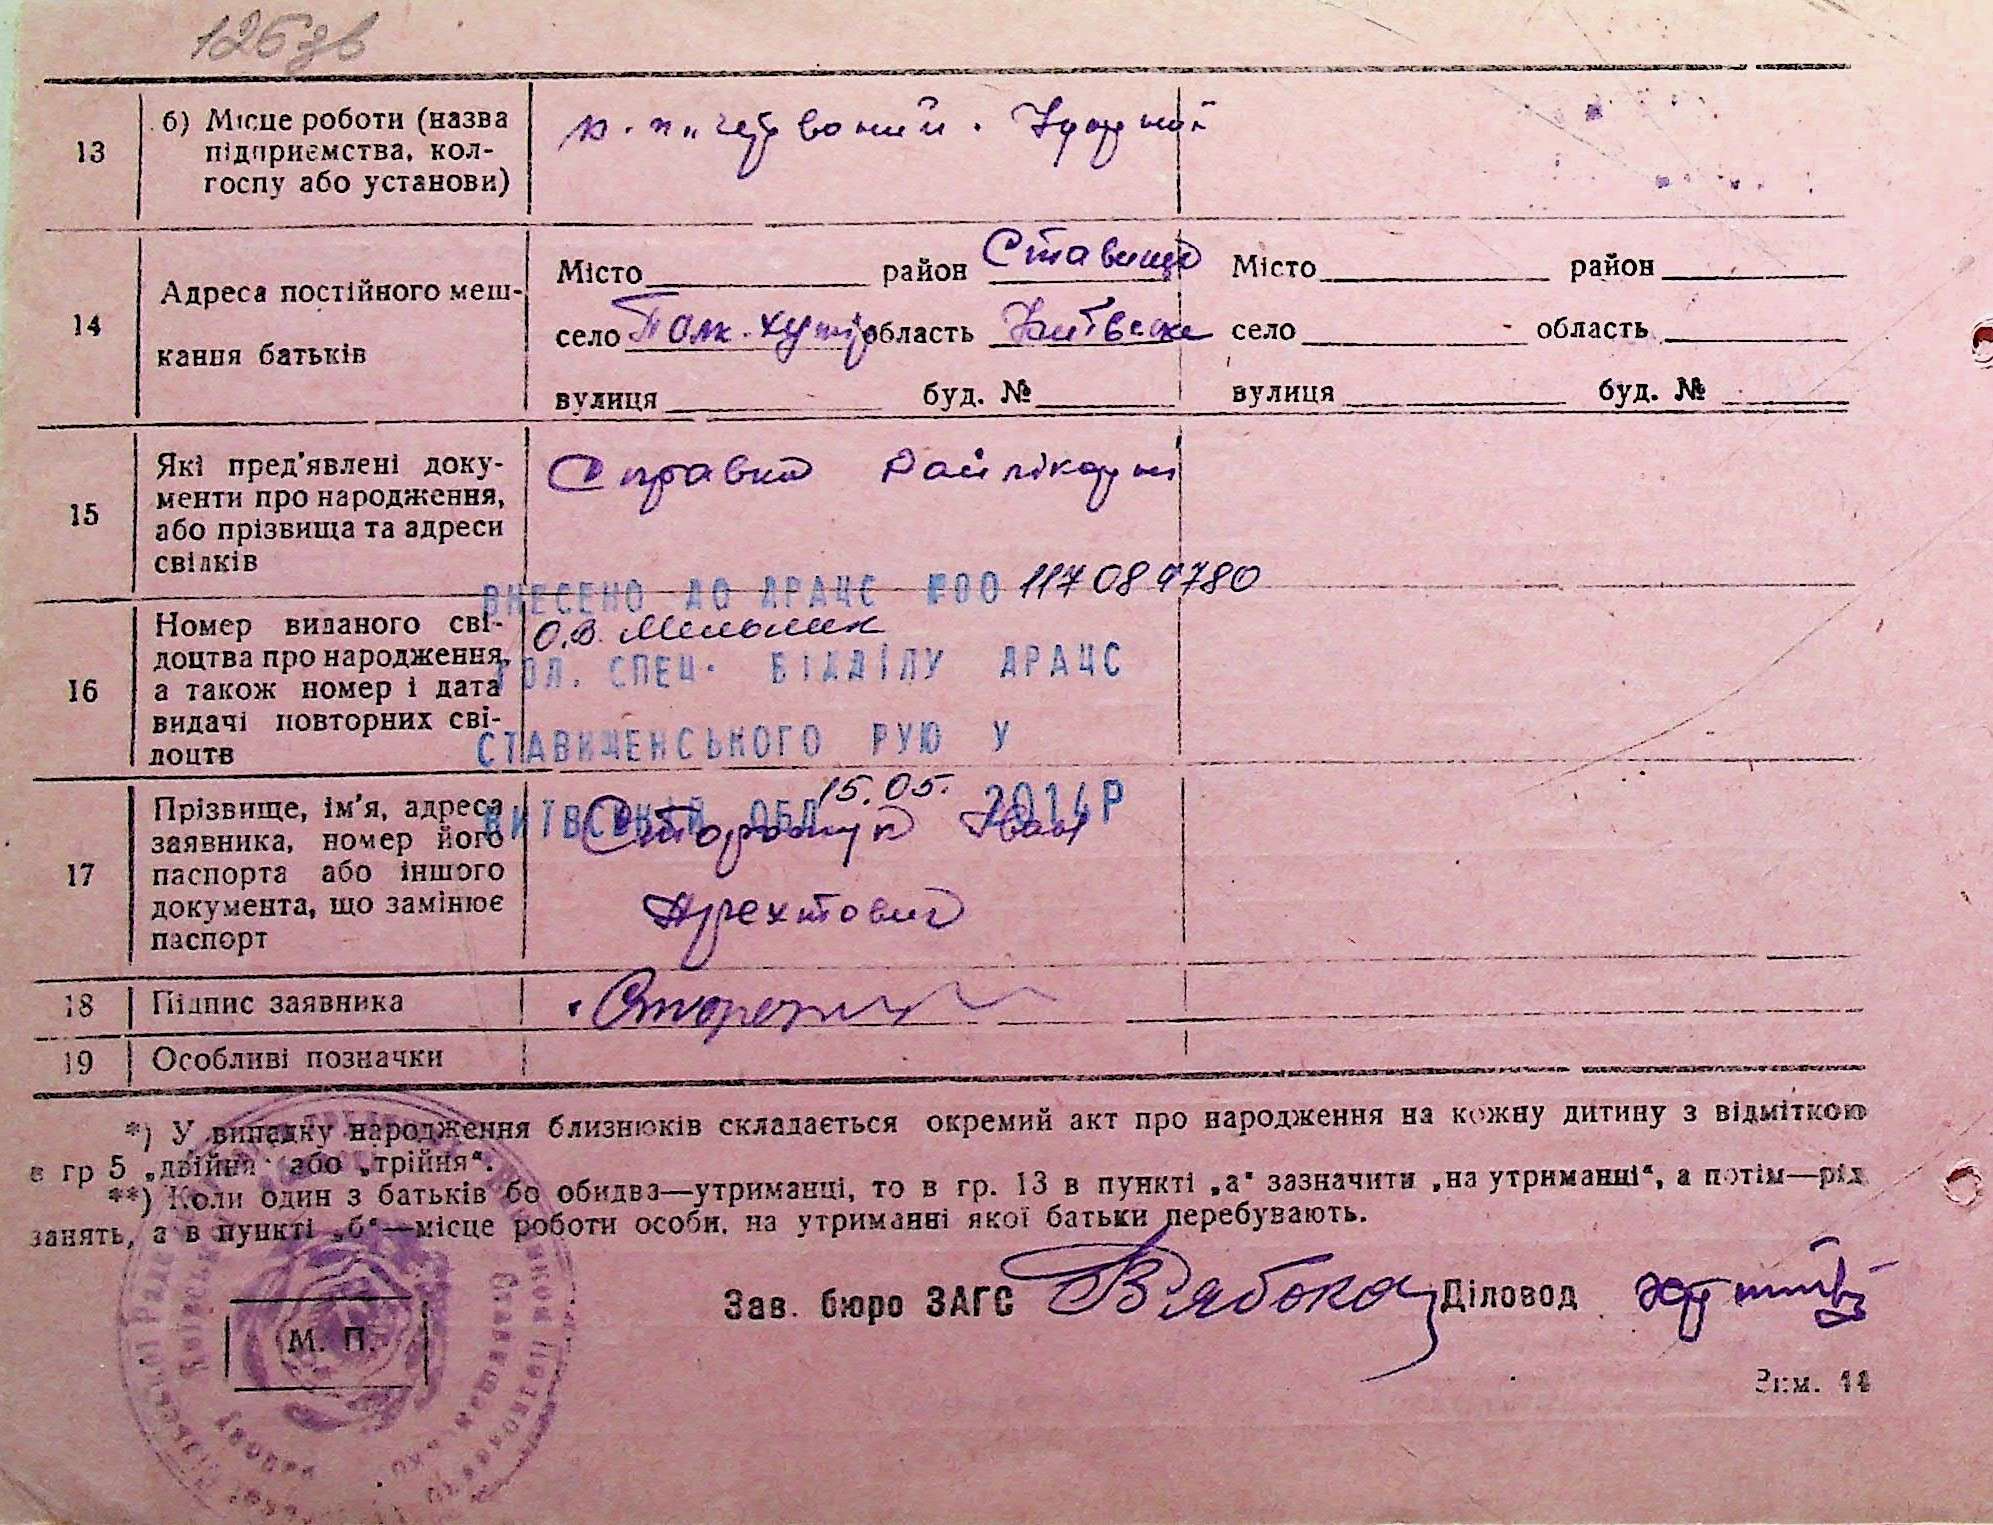 126зв
13 б) Місце роботи (назва
підприємства, кол-
госпу або установи)
14 Адреса постійного меш-
кання батьків
Місто район Ставище
село Полк. хутір область Київська
вулиця буд. №
Місто район
село область
вулиця буд. №
15 Які пред'явлені доку-
менти про народження,
або прізвища та адреси
свідків
Справка Райлікарні
16 Номер виданого сві-
доцтва про народження,
а також номер і дата
видачі повторних сві-
доцтв
ВНЕСЕНО ДО ДРАЦС 00117089780
О.В. Мельник
ГОЛ. СПЕЦ. ВІДДІЛУ ДРАЦС
СТАВИЩЕНСЬКОГО РУЮ У
КИЇВСЬКІЙ ОБЛ 15.05. 2014Р
17 Прізвище, ім'я, адреса
заявника, номер його
паспорта або іншого
документа, що замінює
паспорт
Сторожук Іван
18 Підпис заявника
19 Особливі позначки
*) У випадку народження близнюків складається окремий акт про народження на кожну дитину з відміткою
в гр 5 „двійня" або „трійня".
**) Коли один з батьків бо обидва—утриманці, то в гр. 13 в пункті „а" зазначити „на утриманні", а потім—рід
занять, а в пункті „б"—місце роботи особи, на утриманні якої батьки перебувають.
Зав. бюро ЗАГС Діловод
М. П.
Зкм. 44